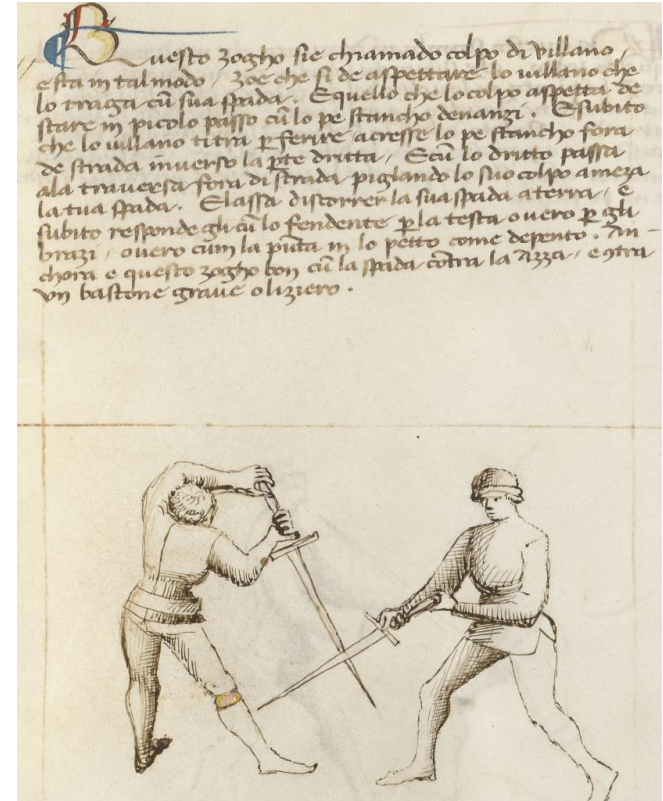 Questo zogho sie chiamado colpo di villano,
e sta in tal modo, zoe che si de aspettare lo villano che
lo traga cū sua spada. E quello che lo colpo aspetta de
stare in picolo passo cū lo pe stancho denanzi. E subito
che lo villano ti tra ꝑ ferire acresse lo pe stancho fora
de strada inverso la ꝑte dritta, E cū lo dritto passa
ala traversa fora di strada pigliando lo suo colpo a meza
la tua spada. E lassa discorrer la sua spada a terra, e
subito responde gli cū lo fendente ꝑ la testa overo ꝑ gli
brazi, overo cum la pūta in lo petto come depento. An-
chora e questo zogho bon cū la spada cōtra la azza, e ꝯtra
un bastone grave o liziero.